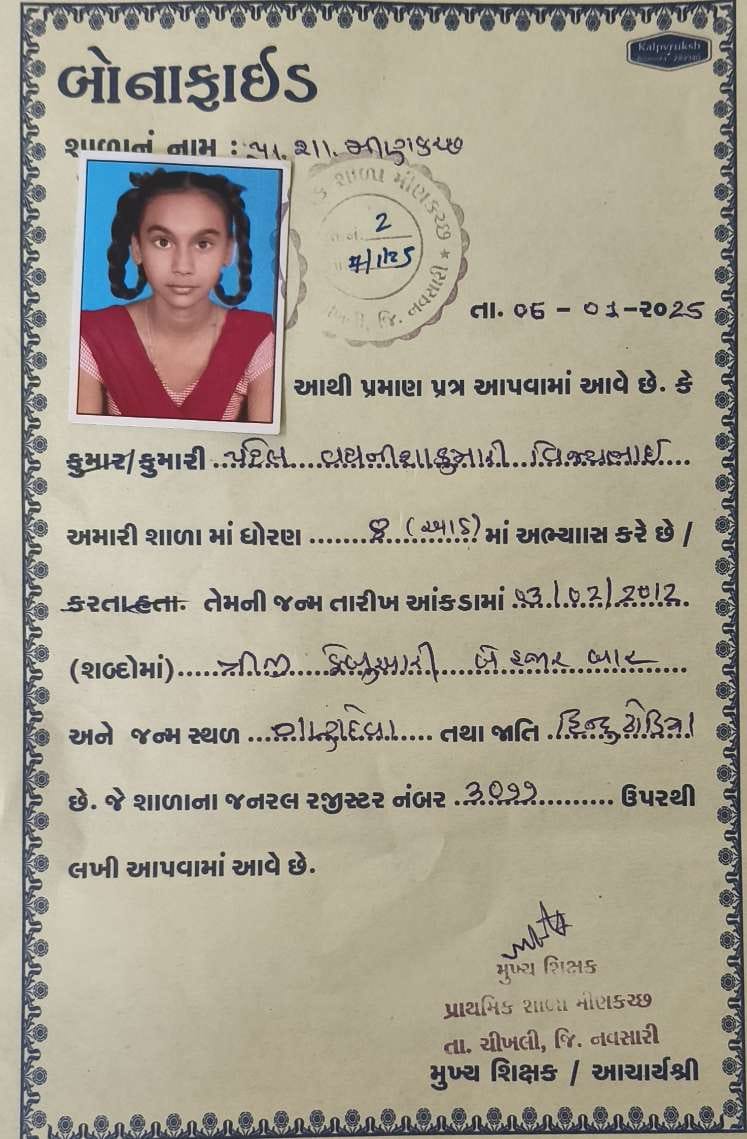 Kalpvruksh
બોનાફાઈડ
શાળાનું નામ : પ્રા. શા. મીણકચ્છ
શાળા મીણકચ્છ
2
7/1/25
જિ. નવસારી
તા. ૦૬ - ૦૧ -૨૦૨૫
આથી પ્રમાણ પત્ર આપવામાં આવે છે. કે
કુમાર/કુમારી પટેલ કુમારી વિજયભાઈ
અમારી શાળા માં ધોરણ ૮ (આઠ) માં અભ્યાસ કરે છે /
કરતા હતા. તેમની જન્મ તારીખ આંકડામાં ૦૩/૦૨/૨૦૧૨
(શબ્દોમાં) ત્રીજી ફેબ્રુઆરી બે હજાર બાર
અને જન્મ સ્થળ તથા જાતિ હિન્દુ ધોડિયા
છે. જે શાળાના જનરલ રજીસ્ટર નંબર ૩૦૧૧ ઉપરથી
લખી આપવામાં આવે છે.
મુખ્ય શિક્ષક
પ્રાથમિક શાળા મીણકચ્છ
તા. ચીખલી, જિ. નવસારી
મુખ્ય શિક્ષક / આચાર્યશ્રી